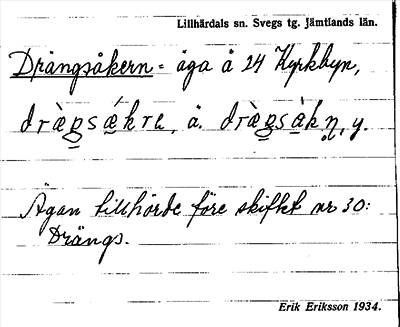 Lillhärdals sn. Svegs tg. Jämtlands län.
Drängsåkern = äga å 24 Kyrkbyn,
dræ̀gsǻkrɐ, ä. dræ̀gsàkn̥, y.
Ägan tillhörde före skiftet nr 30:
Drängs.
Erik Eriksson 1934.